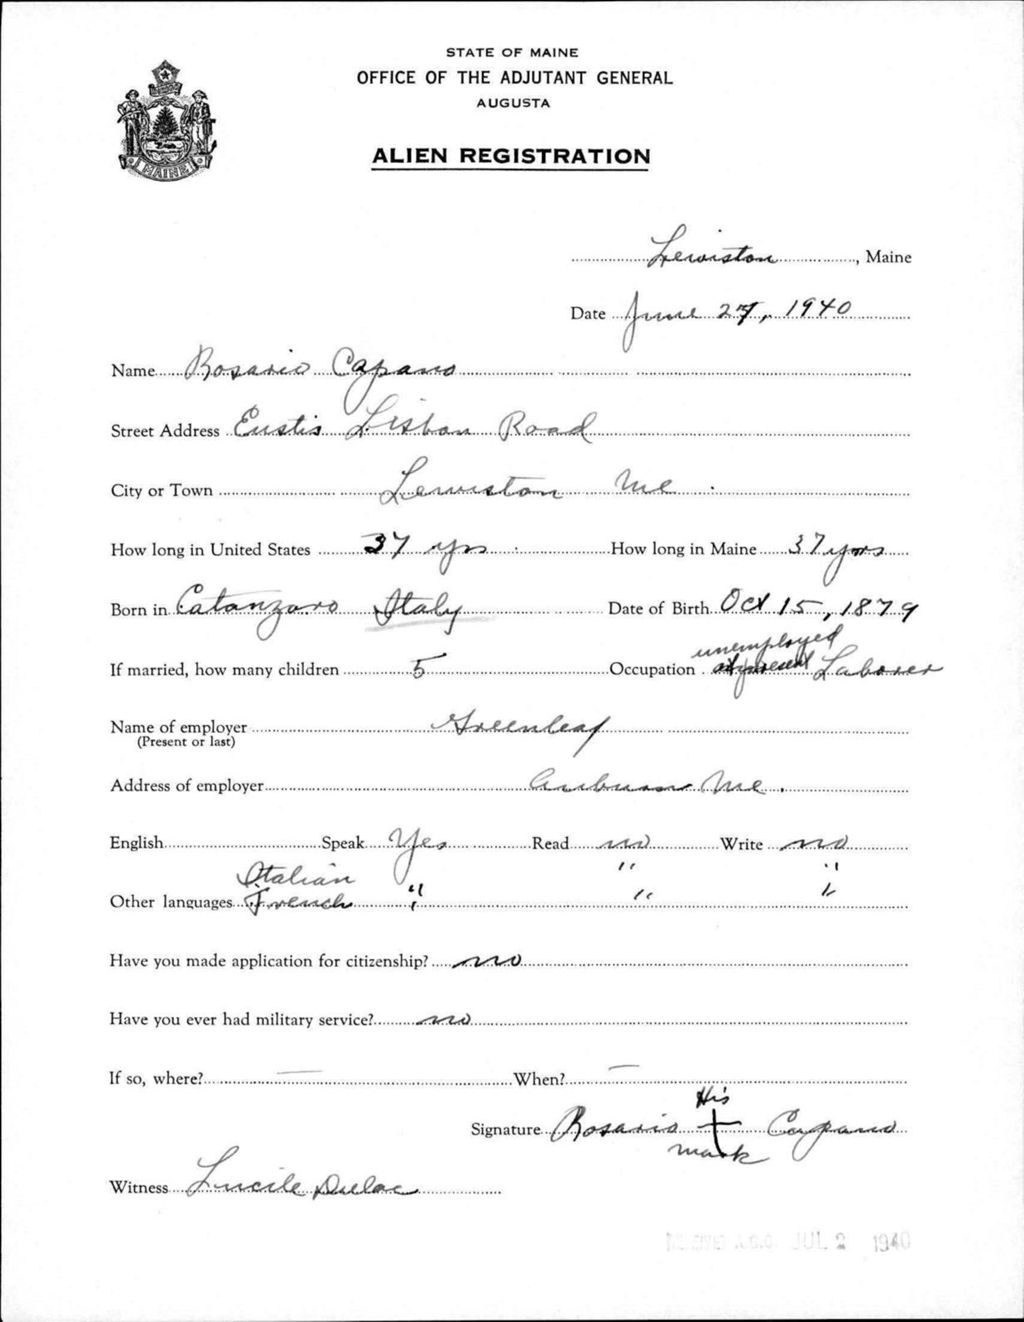 STATE OF MAINE
OFFICE OF THE ADJUTANT GENERAL
AUGUSTA
ALIEN REGISTRATION
MAINE
Lewiston, Maine
Date June 27, 1940
Name Rosario Capano
Street Address Eustis Lisbon Road
City or Town Lewiston Me.
How long in United States 37 yrs How long in Maine 37 yrs
Born in Catanzaro Italy Date of Birth Oct 15, 1879
unemployed
If married, how many children 5 Occupation at present Laborer
Name of employer Greenleaf
(Present or last)
Address of employer Auburn Me.
English Speak Yes Read no Write no
Italian " " "
Other languages French " " "
Have you made application for citizenship? no
Have you ever had military service? no
If so, where? — When? —
His
Signature Rosario + Capano
mark
Witness Lucile Dulac
RECEIVED A.G.O. JUL 2 1940